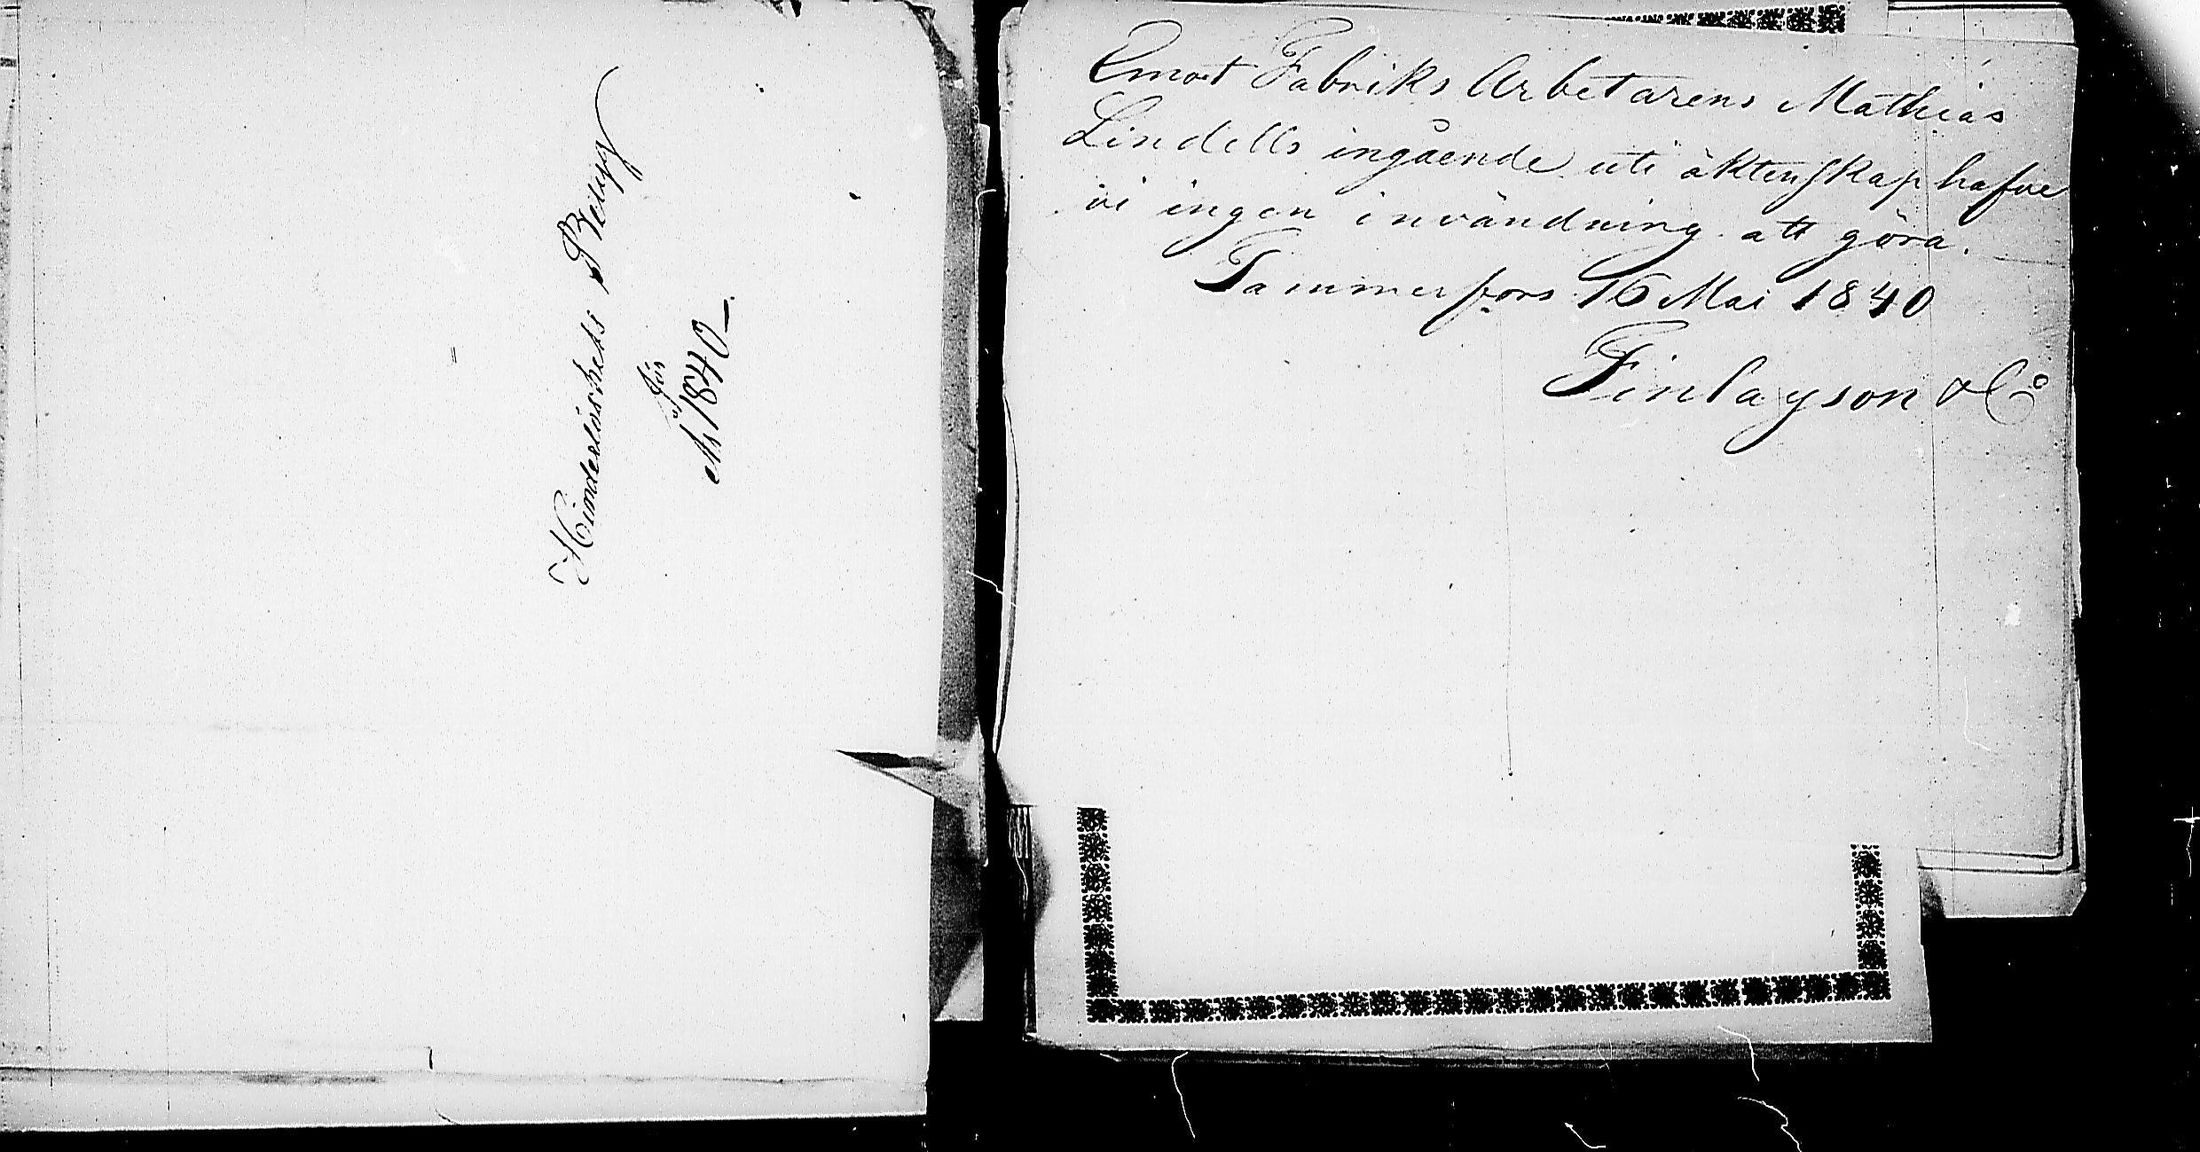 Hinderlöshets Bevis
för
År 1840
Emot Fabriks Arbetarens Mathias
Lindells ingående uti äktenskap hafve
vi ingen invändning att göra.
Tammerfors 16 Mai 1840
Finlayson & Co